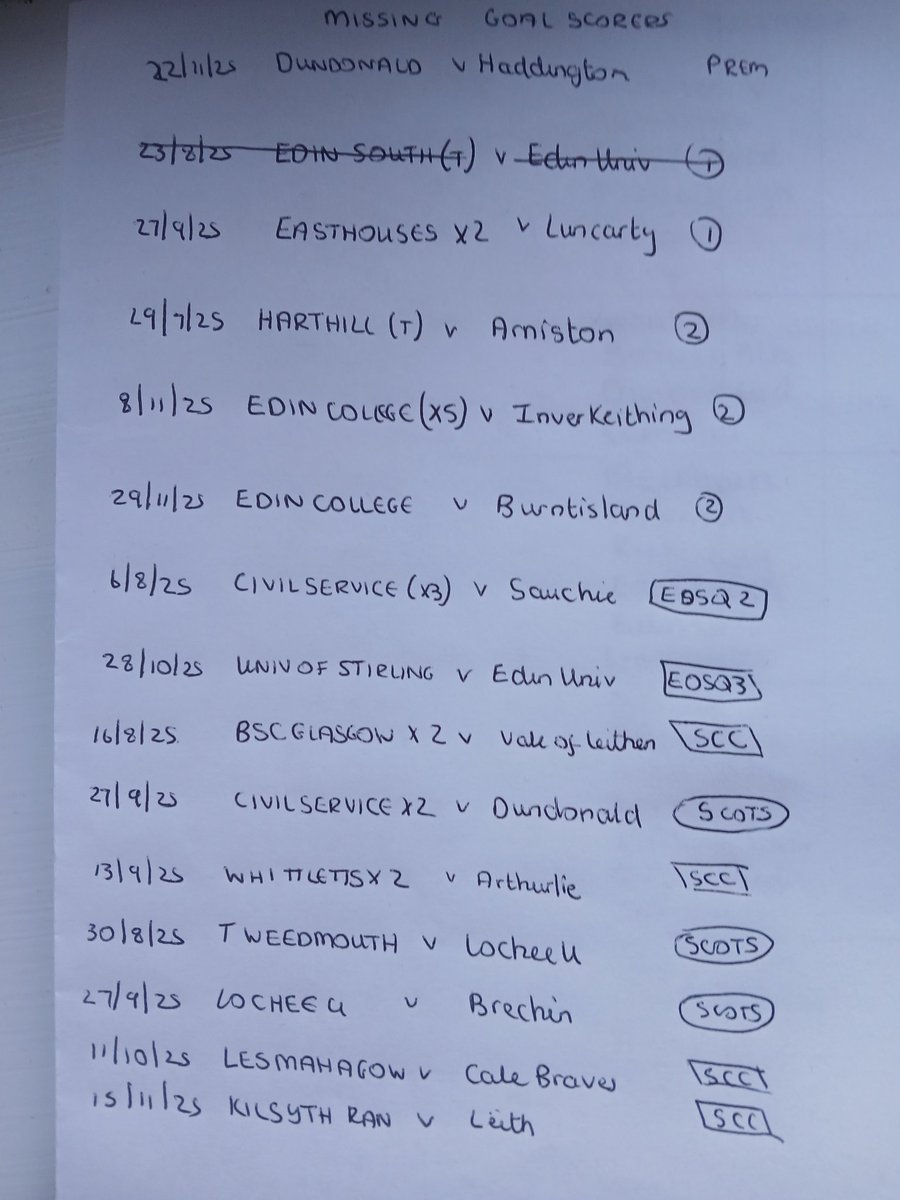 MISSING GOAL SCORERS
22/11/25 DUNDONALD v Haddington PREM
23/8/25 EDIN SOUTH (T) v Edin Univ (1)
27/9/25 EASTHOUSES X2 v Luncarty (1)
29/7/25 HARTHILL (T) v Arniston (2)
8/11/25 EDIN COLEGE (X5) v Inverkeithing (2)
29/11/25 EDIN COLLEGE v Burntisland (2)
6/8/25 CIVIL SERVICE (X3) v Sauchie EOSQ2
28/10/25 UNIV OF STIRLING v Edin Univ EOSQ3
16/8/25 BSC GLASGOW X2 v Vale of Leithen SCC
27/9/25 CIVIL SERVICE X2 v Dundonald SCOTS
13/9/25 WHITTLETTS X2 v Arthurlie SCC
30/8/25 TWEEDMOUTH v Lochee U SCOTS
27/9/25 LOCHEE U v Brechin SCOTS
11/10/25 LESMAHAGOW v Cale Braves SCC
15/11/25 KILSYTH RAN v Leith SCC